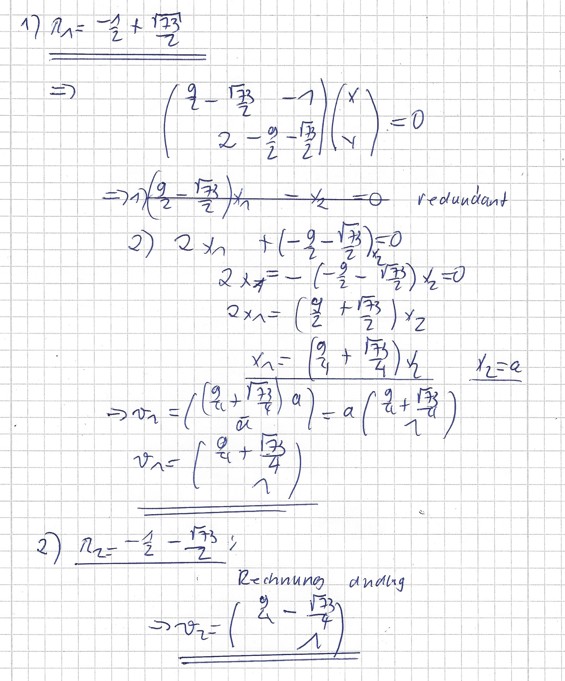 1) λ₁ = -1/2 + √73/2
=> ( 9/2 - √73/2   -1 ) ( x )
( 2   -9/2 - √73/2 ) ( y ) = 0
=> 1) (9/2 - √73/2) x₁ - x₂ = 0 redundant
2) 2x₁ + (-9/2 - √73/2) x₂ = 0
2x₁ = - (-9/2 - √73/2) x₂ = 0
2x₁ = (9/2 + √73/2) x₂
x₁ = (9/4 + √73/4) x₂   x₂ = a
=> v₁ = ( (9/4 + √73/4) a ; a ) = a ( 9/4 + √73/4 ; 1 )
v₁ = ( 9/4 + √73/4 ; 1 )
2) λ₂ = -1/2 - √73/2 ;
Rechnung analog
=> v₂ = ( 9/4 - √73/4 ; 1 )